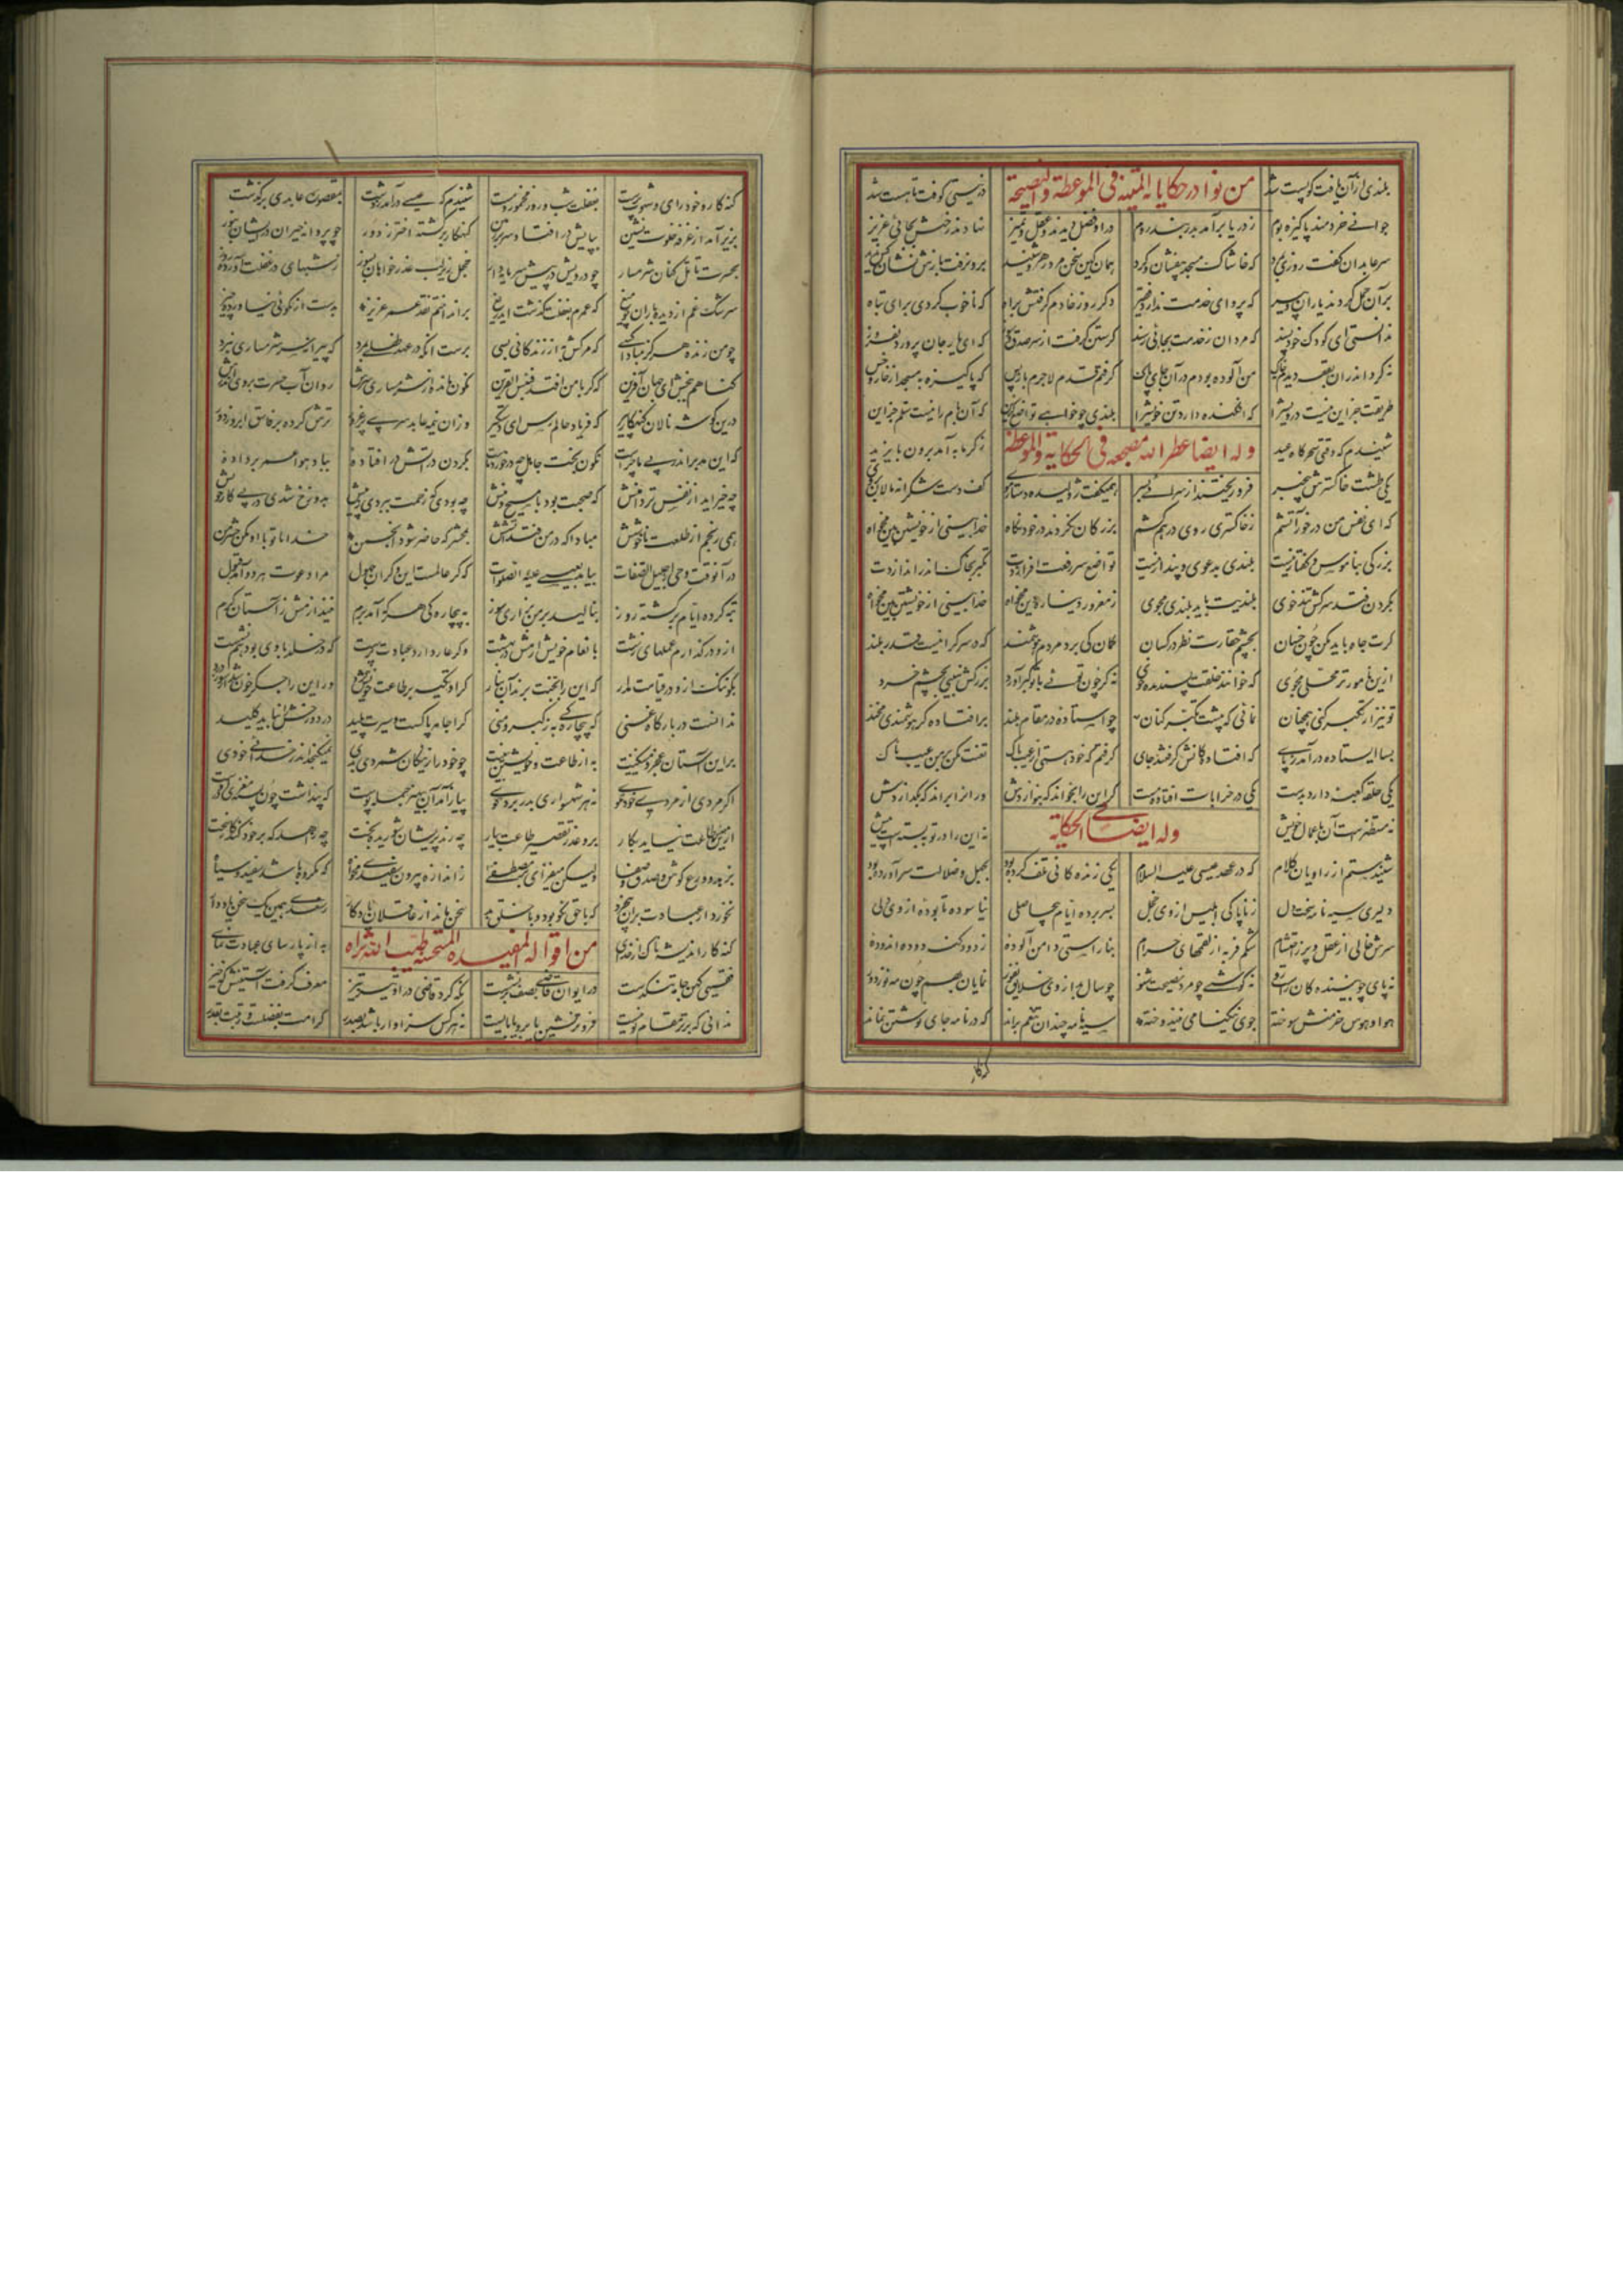 بلندی از آن یافت کو پست شد در نیستی کوفت تا هست شد
من نوادر حکایاته المتینه فی الموعظة والنصیحة
جوانے خردمند پاکیزه بوم ز دریا برآمد بدربند روم درو فضل دیدند و عقل و تمیز نهادند رختش بجائی عزیز
سر عابدان گفت روزی بمرد که خاشاک مسجد بیفشان و گرد همان کین سخن مرد رهرو شنید برون رفت و بازش نشان کس ندید
بر آن حمل کردند یاران و پیر که پروای خدمت ندارد فقیر دگر روز خادم گرفتش براه که ناخوب کردی برای تباه
ندانستی ای کودک خودپسند که مردان ز خدمت بجائی رسند گرستن گرفت از سر صدق و سوز که ای یار جان پرور دلفروز
نه گرد اندران بقعه دیدم نه خاک من آلوده بودم در آن جای پاک گرفتم قدم لاجرم بازپس که پاکیزه به مسجد از خار و خس
طریقت جز این نیست درویش را که افکنده دارد تن خویش را بلندی چو خواهے تواضع گزین که آن بام را نیست سلم جز این
وله ایضا عطر الله مضجعه فی الحکایة والموعظة
شنیدم که وقتی سحرگاه عید ز گرمابه آمد برون بایزید
یکی طشت خاکسترش بیخبر فرو ریختند از سرائے بسر همیگفت ژولیده دستار و موی کف دست شکرانه مالان بروی
که ای نفس من در خور آتشم ز خاکستری روی درهم کشم بزرگان نکردند در خود نگاه خدا بینی از خویشتن بین مخواه
بزرگی بناموس و گفتار نیست بلندی بدعوی و پندار نیست تواضع سر رفعت افرازدت تکبر بخاک اندر اندازدت
بگردن فتد سرکش تندخوی بلندیت باید بلندی مجوی ز مغرور دنیا ره دین مخواه خدا بینی از خویشتن بین مخواه
گرت جاه باید مکن چون خسان بچشم حقارت نظر در کسان گمان کی برد مردم هوشمند که در سرگرانیست قدر بلند
ازین نامورتر محلی مجوی که خوانند خلقت پسندیده خوی نه گر چون توئے بر تو کبر آورد بزرگش نبینی بچشم خرد
تو نیز ار تکبر کنی همچنان نمائی که پیشت تکبر کنان چو استاده در مقام بلند بر افتاده گر هوشمندی مخند
بسا ایستاده درآمد ز پای که افتادگانش گرفتند جای گرفتم که خود هستی از عیب پاک تعنت مکن بر من عیب ناک
یکی حلقه کعبه دارد بدست یکی در خرابات افتاده مست گر این را بخواند که نگذاردش ور انرا براند که باز آردش
نه مستظهرست آن باعمال خویش نه این را در توبه بستست پیش
وله ایضا الحکایة
شنیدستم از راویان کلام که در عهد عیسی علیه السلام یکی زندگانی تلف کرده بود بجهل و ضلالت سر آورده بود
دلیری سیه نامه سخت دل ز ناپاکی ابلیس از وی خجل بسر برده ایام بیحاصلی نیاسوده تا بوده از وی دلی
سرش خالی از عقل و پر ز احتشام شکم فربه از لقمهای حرام بناراستی دامن آلوده بنا داشتی دوده اندوده
نه پای چو بیننده گان راست رو نه گوشے چو مردم نصیحت شنو چو سال بد از وی خلایق نفور نمایان بهم چون مه نو ز دور
هوا و هوس خرمنش سوخته جوی نیکنامی نیندوخته سیه نامه چندان تنعم براند که در نامه جای نوشتن نماند
گنهکار
گنه کار و خود رای و شهوت پرست بغفلت شب و روز مخمور و مست شنیدم که عیسے درآمد ز دشت بمقصوره عابدی برگذشت
بزیر آمد از غرفه خلوت نشین بپایش درافتاد سر بر زمین گنهکار برگشته اختر ز دور چو پروانه حیران در ایشان ز نور
بحسرت تامل کنان شرمسار چو درویش در پیش سرمایه دار خجل زیر لب عذر خواهان بسوز ز شبهای در غفلت آورده روز
سرشک غم از دیده باران چو میغ که عمرم بغفلت گذشت ایدریغ برانداختم نقد عمر عزیز بدست از نکوئی نیاورده چیز
چو من زنده هرگز مبادا کسے که مرگش به از زندگانی بسی برست انکه در عهد طفلے بمرد که پیرانه سر شرمساری نبرد
گناهم ببخش ای جهان آفرین که گر با من افتد فبئس القرین نگون مانده از شرمساری سرش روان آب حسرت بروی و برش
درین گوشه نالان گنهکار پیر که فریاد حالم رس ای دستگیر وزان نیمه عابد سرے پر غرور ترش کرده بر فاسق ابرو ز دور
که این مدبر اندر پے ما چراست نگون بخت جاهل چه در خورد ماست بگردن در آتش درافتاده بباد هوا عمر برداده
چه خیر اید از نفس تر دامنش که صحبت بود با مسیح و منش چه بودی که زحمت ببردی ز پیش بدوزخ شدی در پے کار خویش
همی رنجم از طلعت ناخوشش مبادا که در من فتد آتشش بمحشر که حاضر شود انجمن خدایا تو با او مکن حشر من
در آنوقت وحی از جلیل الصفات بیامد بعیسے علیه الصلوات که گر عالمست این و گر آن جهول مرا دعوت هر دو آمد قبول
تبه کرده ایام برگشته روز بنالید بر من بزاری و سوز به بیچارگی هر که آمد برم نیندازمش ز آستان کرم
ازو درگذارم عملهای زشت بانعام خویش ارمش در بهشت وگر عار دارد عبادت پرست که در خلد با وی بود هم نشست
بگو ننگ ازو در قیامت مدار که این را بجنت برند آن بنار گر او تکیه بر طاعت خویش کرد ور این را جگر خون شد از سوز درد
ندانست در بارگاه غنی که بیچارگے به ز کبر و منی کرا جامه پاکست و سیرت پلید در دوزخش را نباید کلید
براین آستان عجز و مسکینیت به از طاعت و خویشتن بینیت چو خود را ز نیکان شمردی بدی نمیگنجد اندر خدائے خودی
اگر مردی از مردے خود مگوے نه هر شهسواری بدر برد گوے پیاز آمد آن بی هنر جمله پوست که پنداشت چون پسته مغزی دروست
ازین نوع طاعت نیاید بکار برو عذر تقصیر طاعت بیار چه رند پریشان شوریده بخت چه زاهد که بر خود کند کار سخت
بزهد و ورع کوش و صدق و صفا ولیکن میفزای بر مصطفے ز اندازه بیرون سفیدی مخواه که مکروه باشد سفید و سیاه
نخورد از عبادت بر آن بیخرد که با حق نکو بود و با خلق بد سخن ماند از عاقلان یادگار ز سعدے همین یک سخن یاد دار
گنه کار اندیشه ناک از خدای به از پارسای عبادت نمای
من اقواله المفیده المستحسنه طیب الله ثراه
فقیهی کهن جامه تنگدست در ایوان قاضے بصف برنشست نگه کرد قاضی درو تیز تیز معرف گرفت آستینش که خیز
ندانی که برتر مقام تو نیست فروتر نشین یا برو یا بایست نه هر کس سزاوار باشد بصدر کرامت بفضلست و رتبت بقدر